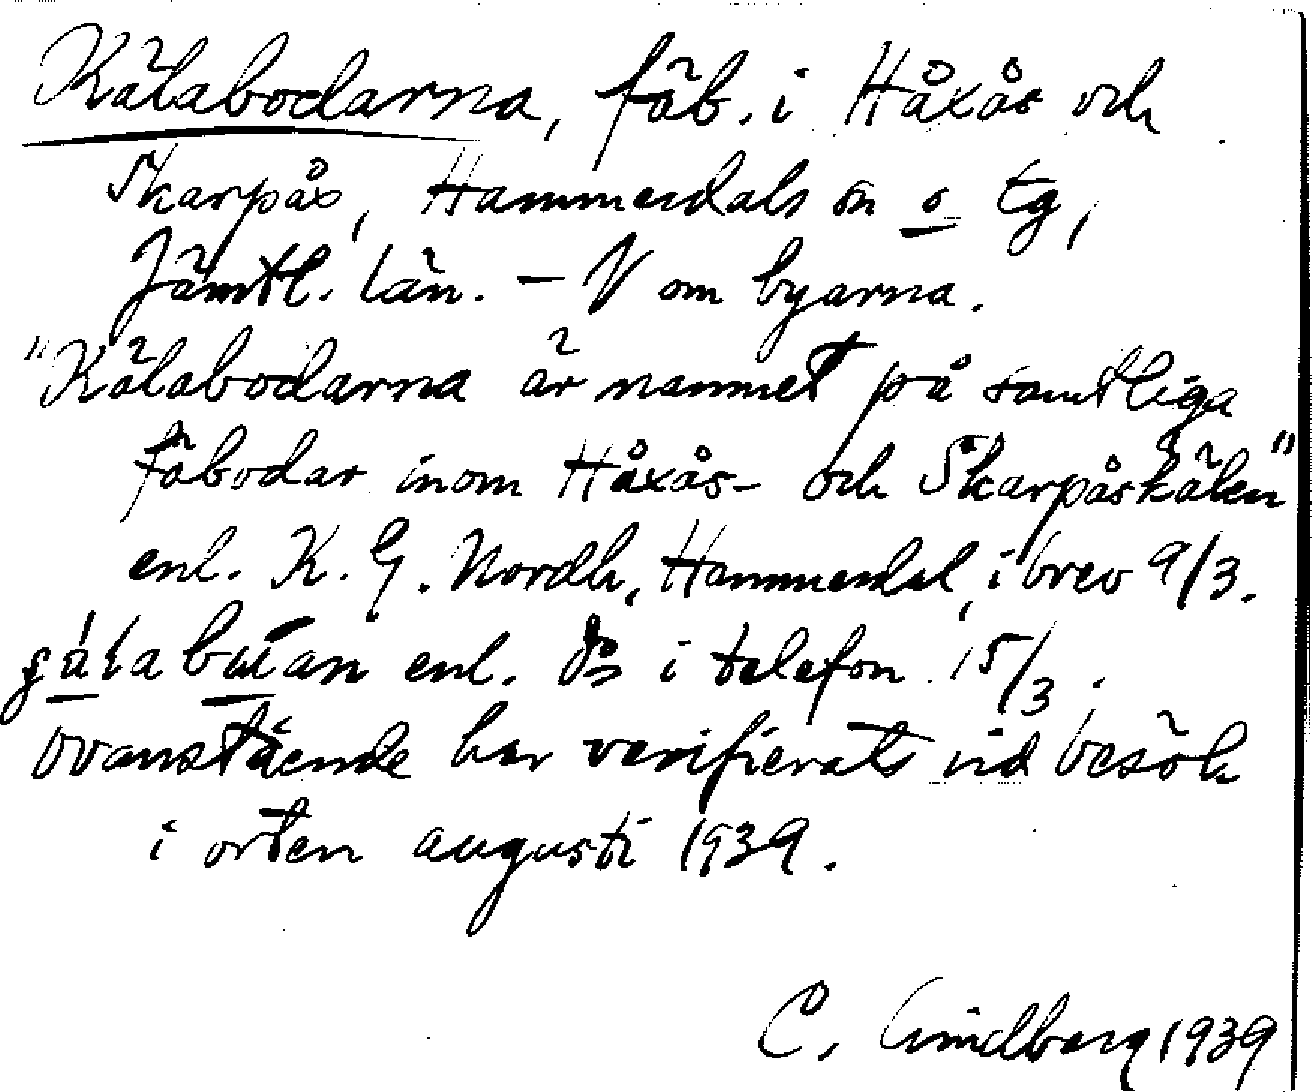 Kälabodarna, fäb. i Håxås och
Skarpås, Hammerdals sn o tg,
Jämtl. län. – V om byarna.
"Kälabodarna är namnet på samtliga
fäbodar inom Håxås- och Skarpåskälen"
enl. K. G. Nordh, Hammerdal, i brev 9/3.
enl. ds i telefon 15/3.
Ovanstående har verifierats vid besök
i orten augusti 1939.
C. Lindberg 1939